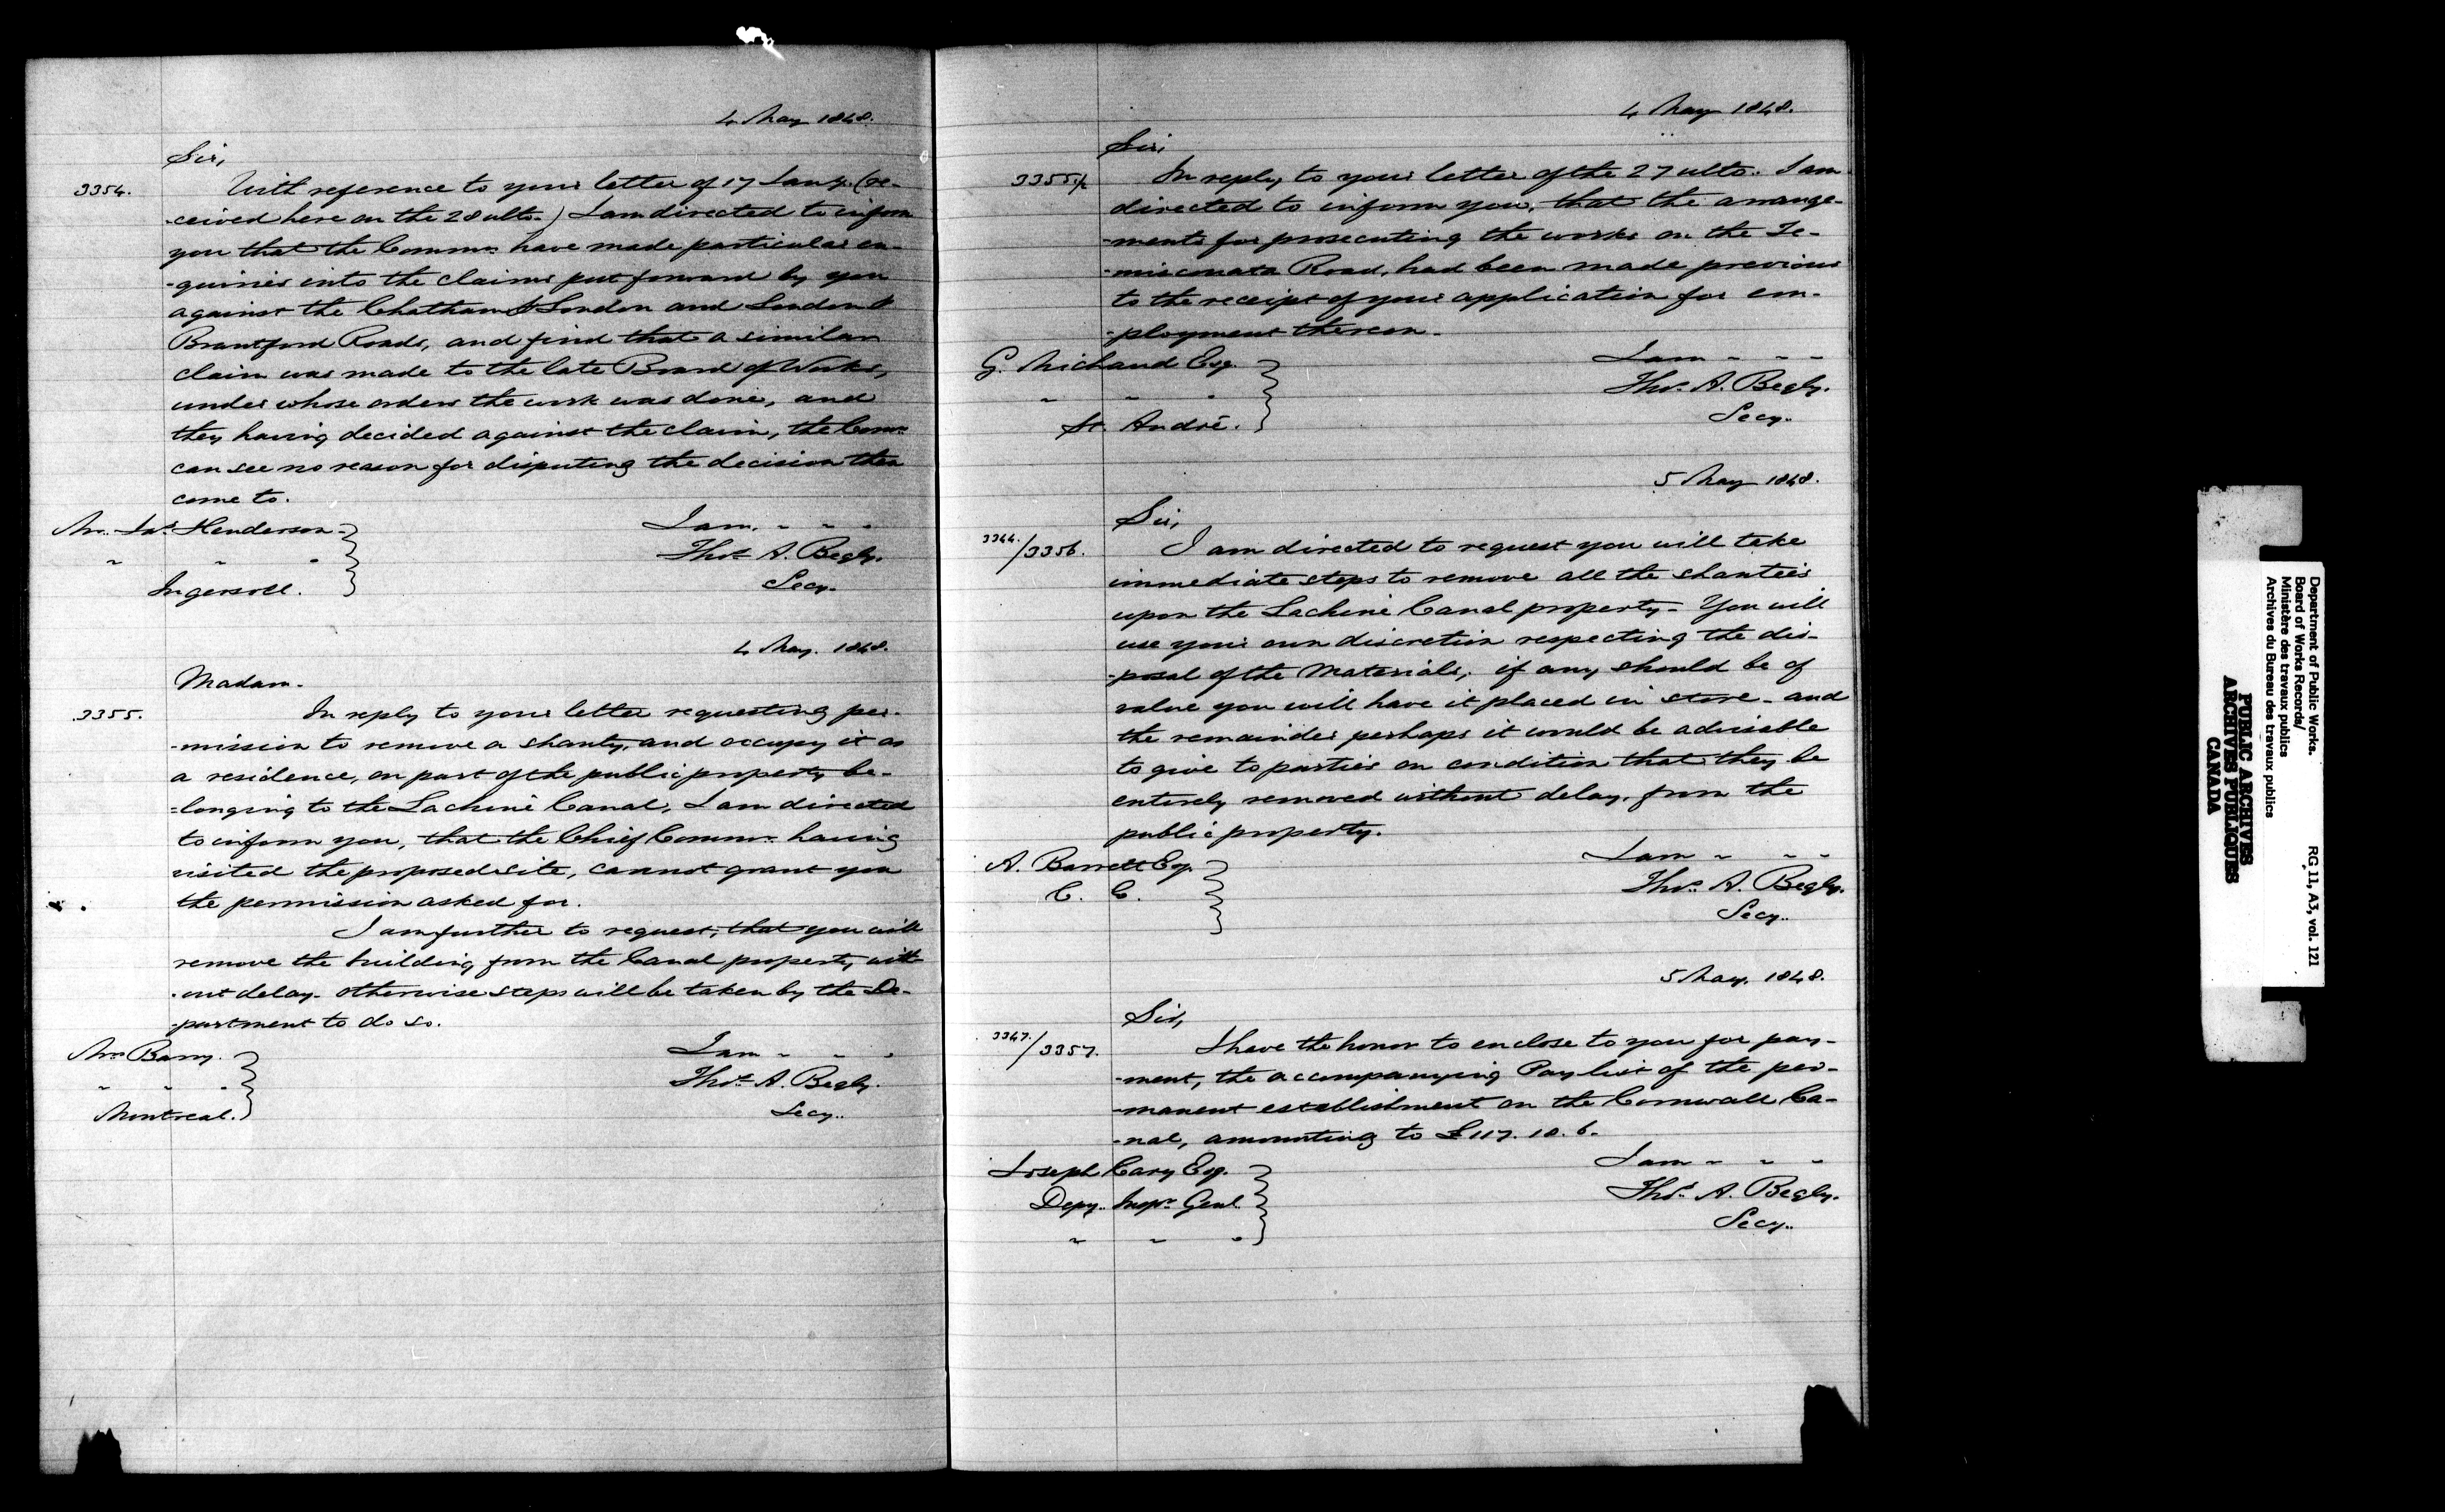 4 May 1848.
Sir,
3354. With reference to your letter of 17 Jany. (re-
-ceived here on the 28 ulto.) I am directed to inform
you that the Commrs have made particular en-
-quiries into the claims put forward by you
against the Chatham & London and London &
Brantford Roads, and find that a similar
claim was made to the late Board of Works,
under whose orders the work was done, and
they having decided against the claim, the Commrs
can see no reason for disputing the decision then
come to.
Mr. Jas. Henderson
" " "
Ingersoll.
I am. " " "
Thos. A. Begly.
Secy.
4 May. 1848.
Madam.
3355. In reply to your letter requesting per-
-mission to remove a shanty, and occupy it as
a residence, on part of the public property be-
-longing to the Lachine Canal, I am directed
to inform you, that the Chief Commr. having
visited the proposed site, cannot grant you
the permission asked for.
I am further to request, that you will
remove the building from the Canal property with
-out delay. otherwise steps will be taken by the De-
-partment to do so.
Mrs Barry.
" " "
Montreal.
I am " " "
Thos. A. Begly.
Secy.
4 May 1848.
Sir,
3355½ In reply to your letter of the 27 ulto. I am
directed to inform you, that the arrange-
-ments for prosecuting the works on the Te-
-misconata Road, had been made previous
to the receipt of your application for em-
-ployment thereon.
G. Michaud Esq.
" " "
St. André.
I am " " "
Thos. A. Begly.
Secy.
5 May 1848.
Sir,
3344./3356. I am directed to request you will take
immediate steps to remove all the shanties
upon the Lachine Canal property - You will
use your own discretion respecting the dis-
-posal of the Materials, if any should be of
value you will have it placed in store - and
the remainder perhaps it would be advisable
to give to parties on condition that they be
entirely removed without delay, from the
public property.
A. Barrett Esq.
C. E.
I am " " "
Thos. A. Begly.
Secy.
5 May. 1848.
Sir,
3347./3357. I have the honor to enclose to you for pay-
-ment, the accompanying Pay list of the per-
-manent establishment on the Cornwall Ca-
-nal, amounting to £117. 10. 6.
Joseph Cary Esq.
Depy. Inspr. Genl.
" " "
I am " " "
Thos. A. Begly.
Secy.
Department of Public Works.
Board of Works Records/
Ministère des travaux publics
Archives du Bureau des travaux publics
RG 11, A3, vol. 121
PUBLIC ARCHIVES
ARCHIVES PUBLIQUES
CANADA